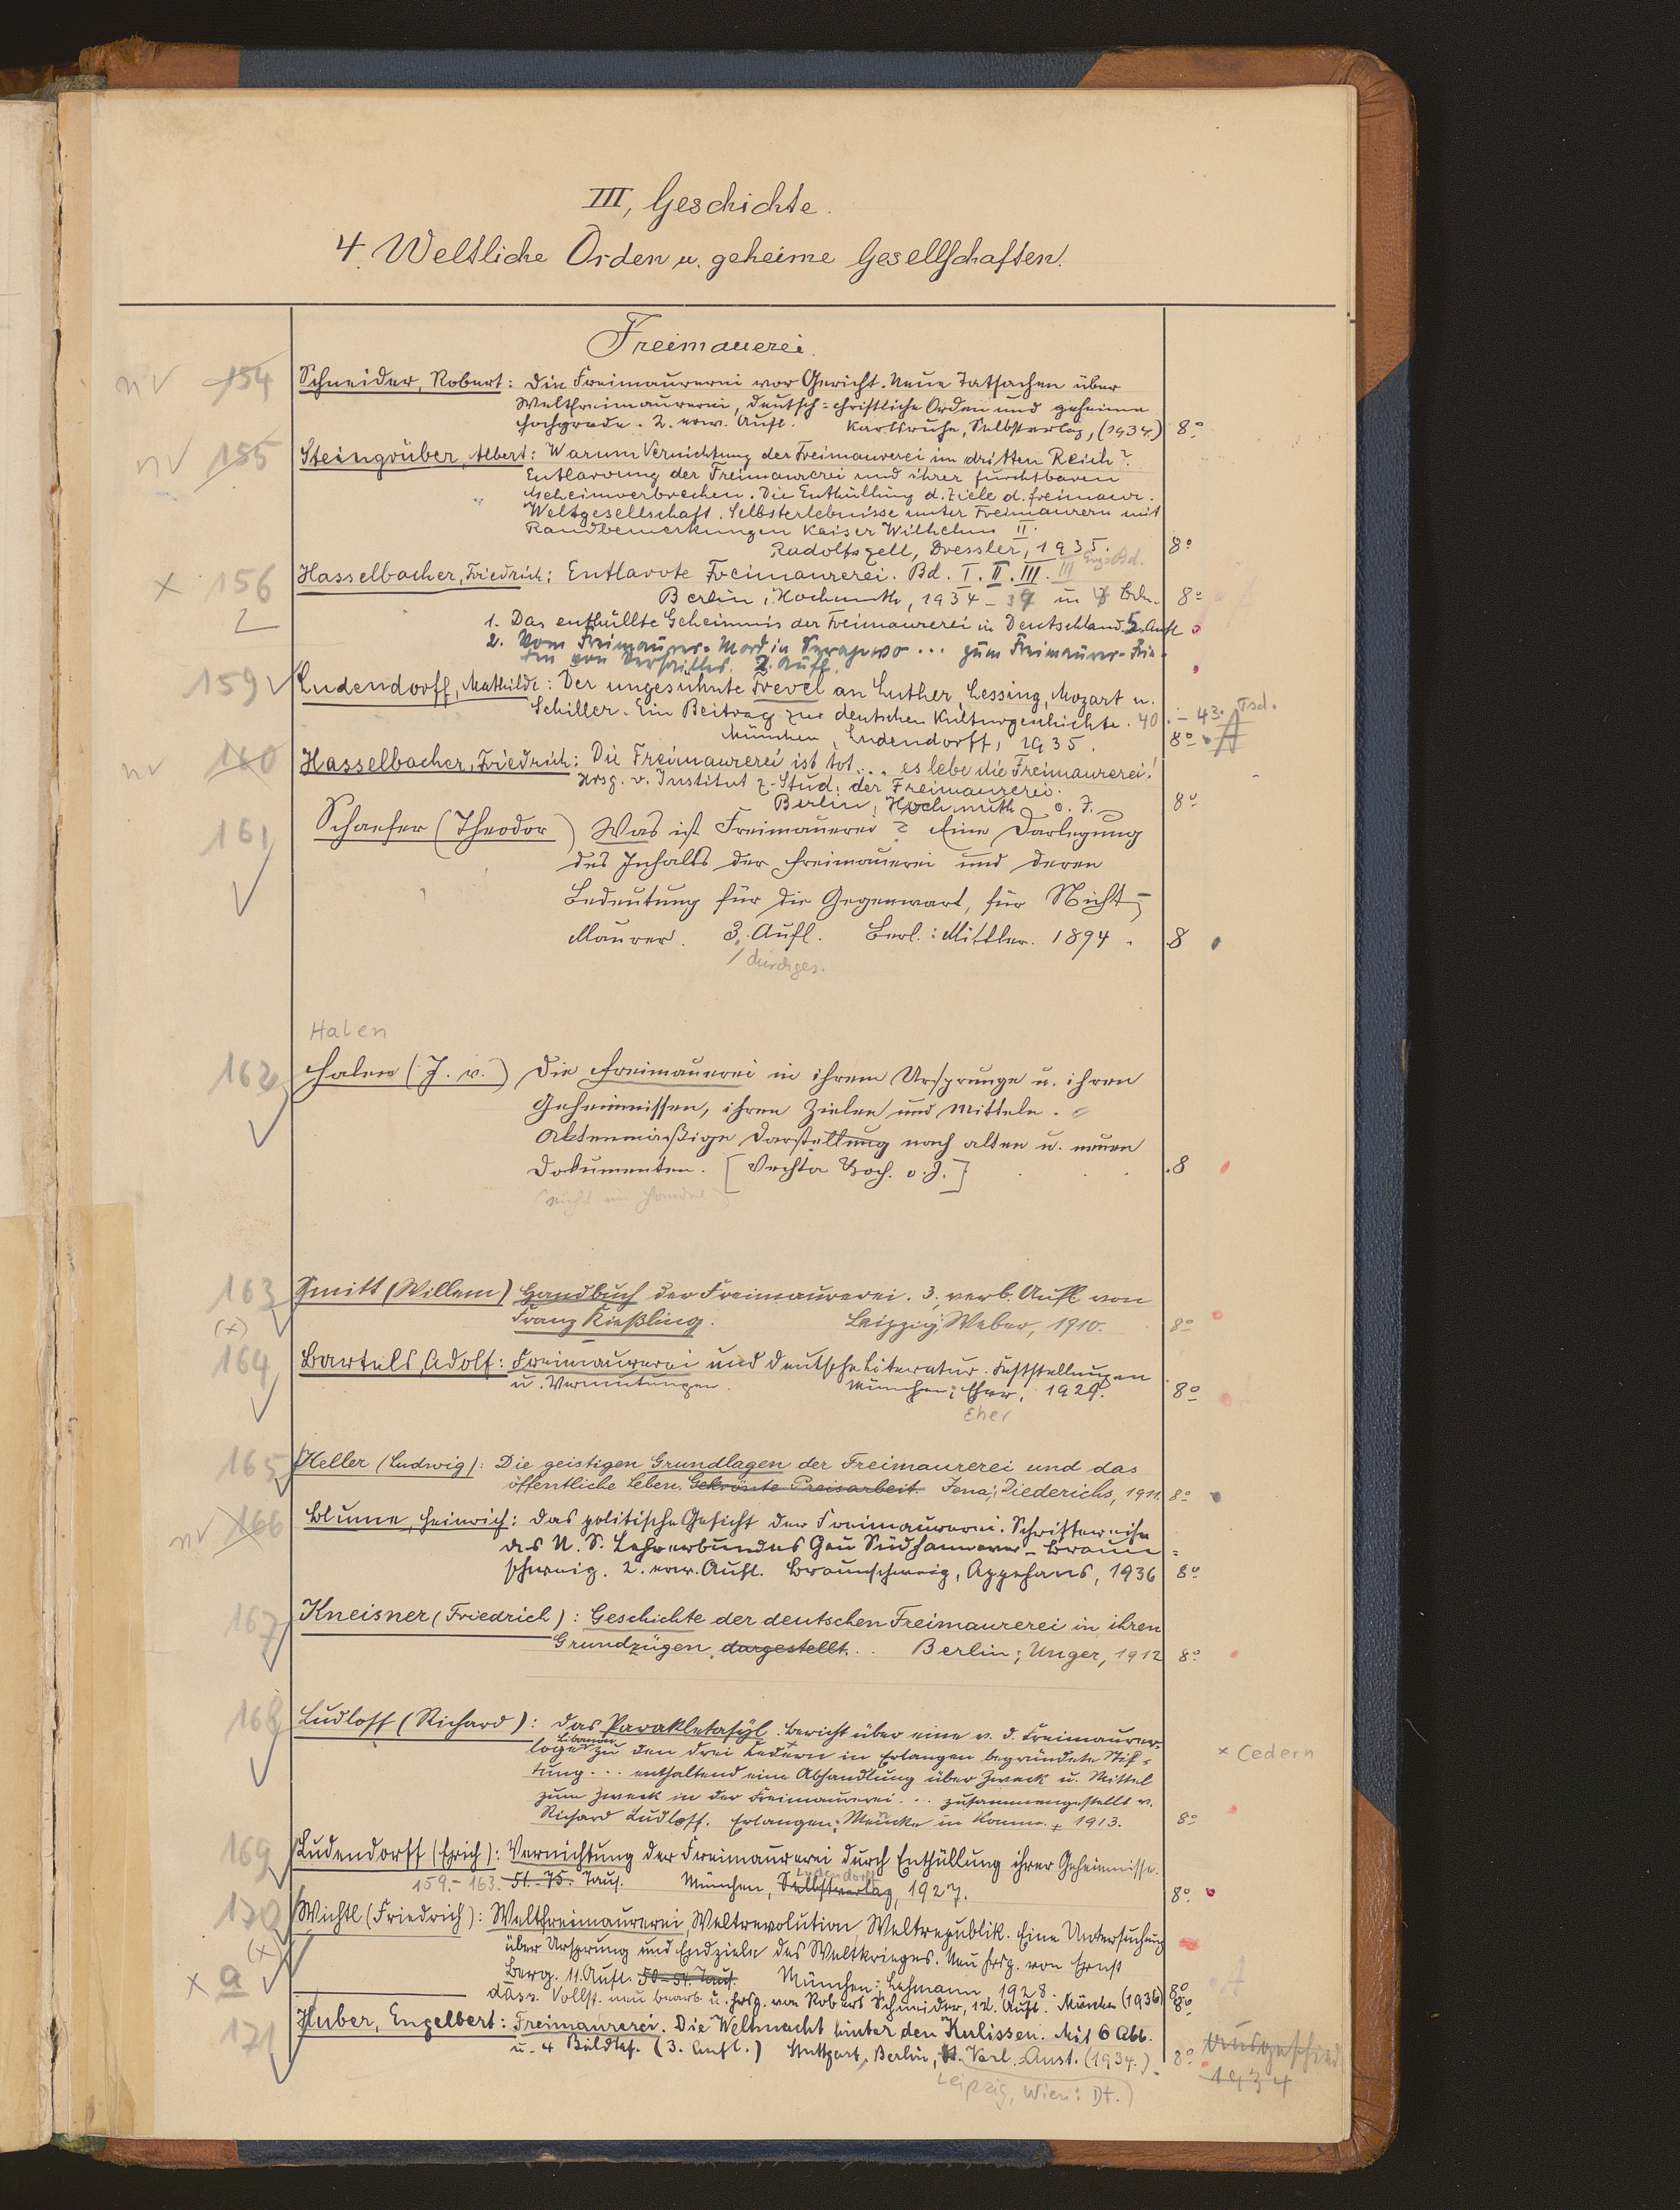 III, Geschichte.
4. Weltliche Orden u. geheime Gesellschaften.
Freimauerei.
nv 154 Schneider, Robert: Die Freimaurerei vor Gericht. Neue Tatsachen über
Weltfreimaurerei, deutsch-christliche Orden und geheime
Hochgrade. 2. erw. Aufl. Karlsruhe, Selbstverlag, (1934.) 8°
nv 155 Steingrüber, Albert: Warum Vernichtung der Freimaurerei im dritten Reich?
Entlarvung der Freimaurerei und ihrer furchtbaren
Geheimverbrechen. Die Enthüllung d. Ziele d. freimaur.
Weltgesellschaft. Selbsterlebnisse unter Freimaurern mit
Randbemerkungen Kaiser Wilhelm II.
Radolfszell, Dressler, 1935. 8°
x 156 Hasselbacher, Friedrich: Entlarvte Freimaurerei. Bd. I. II. III. III Erg. Bd.
2 Berlin, Hochmuth, 1934-39 in Bdn. 8°
1. Das enthüllte Geheimnis der Freimaurerei in Deutschland. 5. Aufl
2. Vom Freimaurer-Mord in Serajewo ... zum Freimaurer-Frie-
den von Versailles. 2. Aufl.
159 Ludendorff, Mathilde: Der ungesühnte Frevel an Luther, Lessing, Mozart u.
Schiller. Ein Beitrag zur deutschen Kulturgeschichte. 40.-43. Tsd.
München, Ludendorff, 1935. 8° A
nv 160 Hasselbacher, Friedrich: Die Freimaurerei ist tot... es lebe die Freimaurerei!
Hrsg. v. Institut z. Stud. der Freimaurerei.
Berlin, Hochmuth o. J. 8°
161 Schaefer (Theodor) Was ist Freimauerei? Eine Darlegung
des Inhalts der Freimauerei und deren
Bedeutung für die Gegenwart, für Nicht-
Maurer. 3. Aufl. Berl.: Mittler. 1894. 8
/ durchges.
Halen
162 Halen (J. v.) Die Freimauerei in ihrem Ursprunge u. ihren
Geheimnissen, ihren Zielen und Mitteln.
Aktenmäßige Darstellung nach alten u. neuen
Dokumenten. [Vechta o. J.] 8
(nicht im Handel)
163 Smitt (Willem) Handbuch der Freimaurerei. 3., verb. Aufl von
(x) Franz Kießling. Leipzig; Weber, 1910. 8°
164 Bartels, Adolf: Freimaurerei und deutsche Literatur. Feststellungen
u. Vermutungen. München: Eher, 1929. 8°
Eher
165 Heller (Ludwig): Die geistigen Grundlagen der Freimaurerei und das
öffentliche Leben. Gekrönte Preisarbeit. Jena; Diederichs, 1911. 8°
nv 166 Blume, Heinrich: Das politische Gesicht der Freimaurerei. Schriftenreihe
des N. S. Lehrerbundes Gau Südhannover-Braun-
schweig. 2. erw. Aufl. Braunschweig, Appelhans, 1936 8°
167 Kneisner (Friedrich): Geschichte der deutschen Freimaurerei in ihren
Grundzügen dargestellt. Berlin; Unger, 1912 8°
168 Ludloff (Richard): Das Parakletasyl. Bericht über eine v. d. Freimaurer-
loge Libanon zu den drei Cedern in Erlangen begründete Stif-
x Cedern
tung... enthaltend eine Abhandlung über Zweck u. Mittel
zum Zweck in der Freimaurerei... zusammengestellt v.
Richard Ludloff. Erlangen: Mencke in Komm., 1913. 8°
169 Ludendorff (Erich): Vernichtung der Freimaurerei durch Enthüllung ihrer Geheimnisse.
159.-163. 51.-75. Taus. München, Selbstverlag Ludendorff, 1927. 8°
170 Wichtl (Friedrich): Weltfreimaurerei, Weltrevolution, Weltrepublik. Eine Untersuchung
(x) über Ursprung und Endziele des Weltkrieges. Neu hrsg. von Ernst
Berg. 11. Aufl. 50-54. Taus. München: Lehmann 1928. 8° A
x a dass. Vollst. neu bearb. u. hrsg. von Robert Schneider, 12. Aufl. München (1936) 8°
171 Huber, Engelbert: Freimaurerei. Die Weltmacht hinter den Kulissen. Mit 6 Abb.
u. 4 Bildtaf. (3. Aufl.) Stuttgart, Berlin, Verl.-Anst. (1934.) 8°
Leipzig, Wien: Dt.
ausgeschied
1934